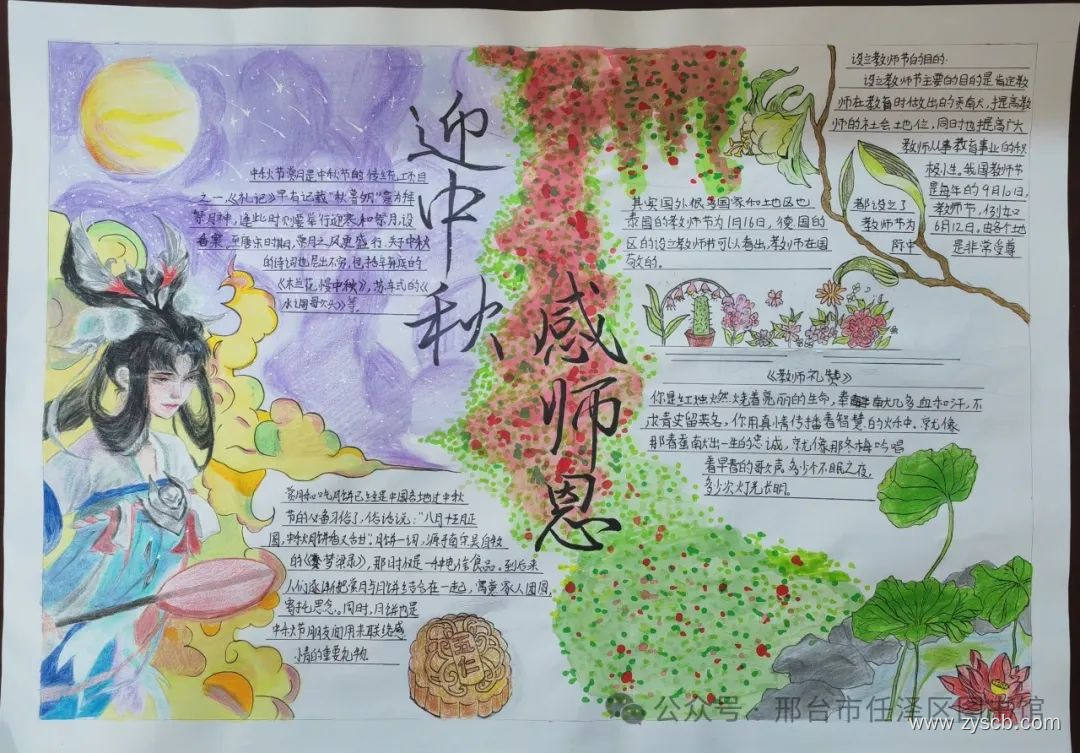 迎中秋
感师恩
中秋节赏月是中秋节的传统项目
之一,《礼记》早有记载“秋暮夕月”意为拜
祭月神,逢此时刻要举行迎寒和祭月,设
香案,至唐宋时期,赏月之风更盛行,关于中秋
的诗词也层出不穷,包括辛弃疾的
《木兰花慢中秋》,苏车式的《
水调哥欠头》等.
赏月和吃月饼已经是中国各地过中秋
节的必备习俗了,俗话说:“八月十五月正
圆,中秋月饼香又甜”,月饼一词,源于南宋吴自牧
的《梦梁录》,那时仅是一种点信食品。到后来
人们逐渐把赏月与月饼结合在一起,寓意家人团圆,
寄托思念。同时,月饼也是
中秋节朋友间用来联络感
情的重要礼物.
五仁
设立教师节的目的.
设立教师节主要的目的是肯定教
师在教育时做出的贡献,提高教
师的社会地位,同时也提高广大
教师从事教育事业的积
极小生,我国教师节
是每年的9月10日,
其实国外很多国家和地区也 都设立了 教师节,例如
泰国的教师节为1月16日,德国的 教师节为 6月12日.由各个地
区的设立教师节可以看出,教师在国 际中 是非常受尊
敬的.
《教师礼赞》
你是红烛燃烧着亮丽的生命,奉献几多血和汗,不
求青史留英名,你用真情传播着智慧的火种.就像
那春蚕献出一生的忠诚,就像那冬梅吟唱
着早春的歌声,多少个不眠之夜,
多少次灯光长明.
公众号·邢台市任泽区图书馆
www.zyscb.com